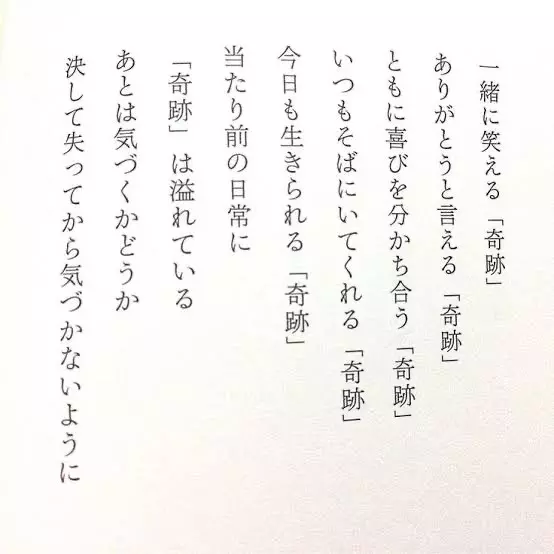 一緒に笑える「奇跡」
ありがとうと言える「奇跡」
ともに喜びを分かち合う「奇跡」
いつもそばにいてくれる「奇跡」
今日も生きられる「奇跡」
当たり前の日常に
「奇跡」は溢れている
あとは気づくかどうか
決して失ってから気づかないように